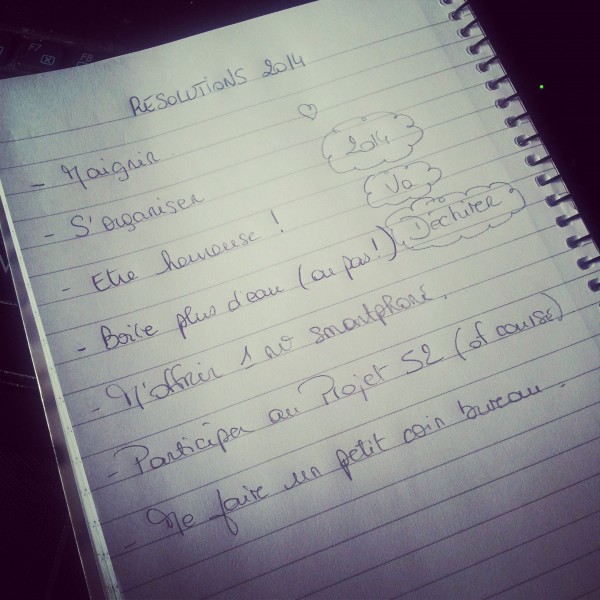 RESOLUTIONS 2014
- Maigrir
- S'organiser
- Etre heureuse !
- Boire plus d'eau (ou pas !)
- M'offrir 1 nv smartphone.
- Participer au Projet 52 (of course)
- Me faire un petit coin bureau.
2014
Va
Déchirer
F7
F8